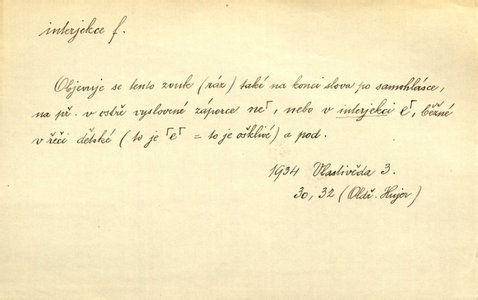 interjekce f.
Objevuje se tento zvuk (ráz) také na konci slova po samohlásce,
na př. v ostře vyslovené záporce ne⸢, nebo v interjekci e⸢, běžné
v řeči dětské (to je ⸢e⸢ = to je ošklivé) a pod.
1934 Vlastivěda 3.
30, 32 (Oldř. Hujer)